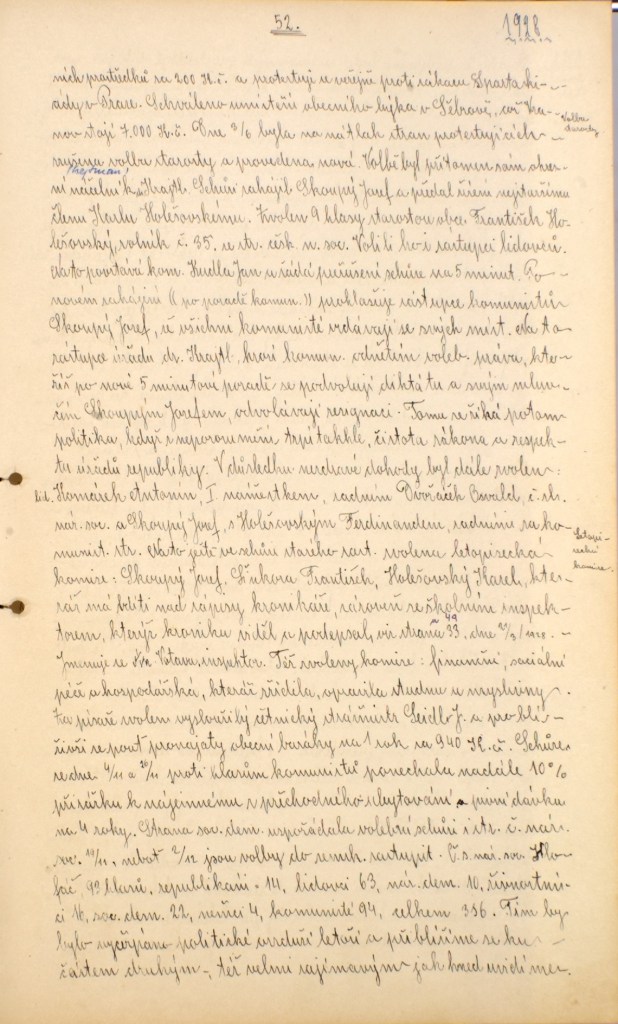 52.
1928
ních prostředků za 200 K.č. a protestují se veřejně proti zákazu Spartaki-
ády v Praze. Schváleno umístění obecního býka v Sěbrově, což Ka-
nov stojí 7.000 K.č. Dne 3/6 byla na nátlak stran protestujících
Volba starosty
volba starosty a provedena nová. Volbě byl přítomen sám okres-
ní náčelník Krajtl. Schůzi zahájil Skoupý Josef a předal řízení nejstaršímu
členu Karlu Holešovskému. Zvolen 9 hlasy starostou obce František Ho-
lešovský, rolník č. 35. ze str. česk. n. soc. Volili ho i zástupci lidovců.
Nato povstává kom. Kudla Jan a žádá přerušení schůze na 5 minut. Po
novém zahájení (po poradě komun.) prohlašuje zástupce komunistů
Skoupý Josef, že všichni komunisté vzdávají se svých míst. Na to
zástupce úřadu dr. Krajtl, hrozí komun. odnětím voleb. práva, kte-
říž po nové 5 minutové poradě se podvolují diktátu a svým mluv-
čím Skoupým Josefem, odvolávají resignaci. Tomu se říká potom
politika, když s neporozuměním trpí takhle, čistota zákona a respek-
tu úřadů republiky. V důsledku nezdravé dohody byl dále zvolen:
lid. Komárek Antonín, I. náměstkem, radním Dvořáček Osvald, č. sl.
nár. soc. a Skoupý Josef, s Holešovským Ferdinandem, radními za ko-
munist. str. Nato ještě ve schůzi starého zast. zvolena letopisecká
Letopisecká komise.
komise: Skoupý Josef, František, Holešovský Karel, kte-
ráž má bdíti nad zápisy kronikáře, zároveň se školním inspek-
torem, kterýž kroniku viděl a podepsal, viz strana 33, 49 dne 2/3/1928.
Jmenuje se Votava, inspektor. Též zvoleny komise: finanční, sociální
péče a hospodářská, kteráž zřídila, opravila studnu u myslivny.
Za písaře zvolen vysloužilý četnický strážmistr Seidl J. a pro blí-
žící se pouť pronajaty obecní baráky na 1 rok za 940 K.č. Schůze
ze dne 4/11 a 20/11 proti hlasům komunistů ponechala nadále 10%
přirážku k nájemnému z přechodného ubytování a pivní dávka
na 4 roky. Strana soc. dem. uspořádala volební schůzi i str. č. nár.
soc. 19/11, neboť 2/12 jsou volby do zemsk. zastupit. Č.s. nár. soc. Klo-
fáč, 93 hlasů, republikáni - 14, lidovci 63, nár. dem. 10, živnostní-
ci 16, soc. dem. 22, němci 4, komunisté 94, celkem 316. Tím by
bylo vyčerpáno politické ovzduší letoší a přiblížíme se ku
částem druhým, též velmi zajímavým jak hned uvidíme.